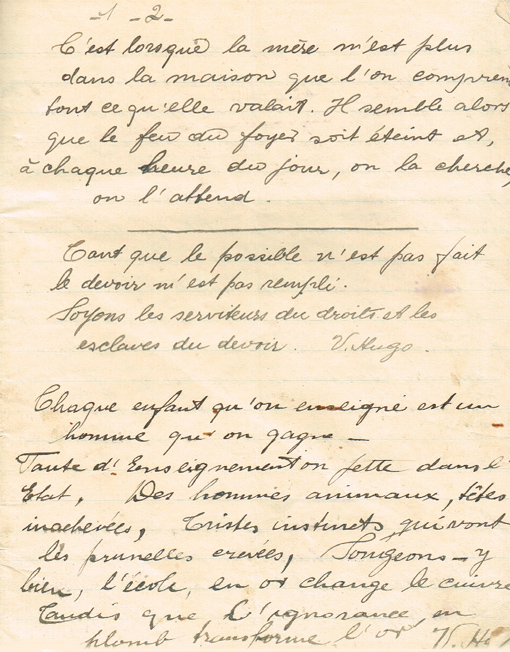 -1 -2-
C'est lorsque la mère n'est plus
dans la maison que l'on compren
tout ce qu'elle valait. Il semble alors
que le feu du foyer soit éteint et,
à chaque heure du jour, on la cherche,
on l'attend.
Tant que le possible n'est pas fait
le devoir n'est pas rempli.
Soyons les serviteurs du droits et les
esclaves du devoir. V. Hugo.
Chaque enfant qu'on enseigne est un
homme qu'on gagne —
Faute d'Enseignement on jette dans l'
Etat, Des hommes animaux, têtes
inachevées, Tristes instincts qui vont
les prunelles crevées, Songeons-y
bien, l'école, en or change le cuivre
Tandis que L'ignorance, en
plomb transforme l'or V. H.